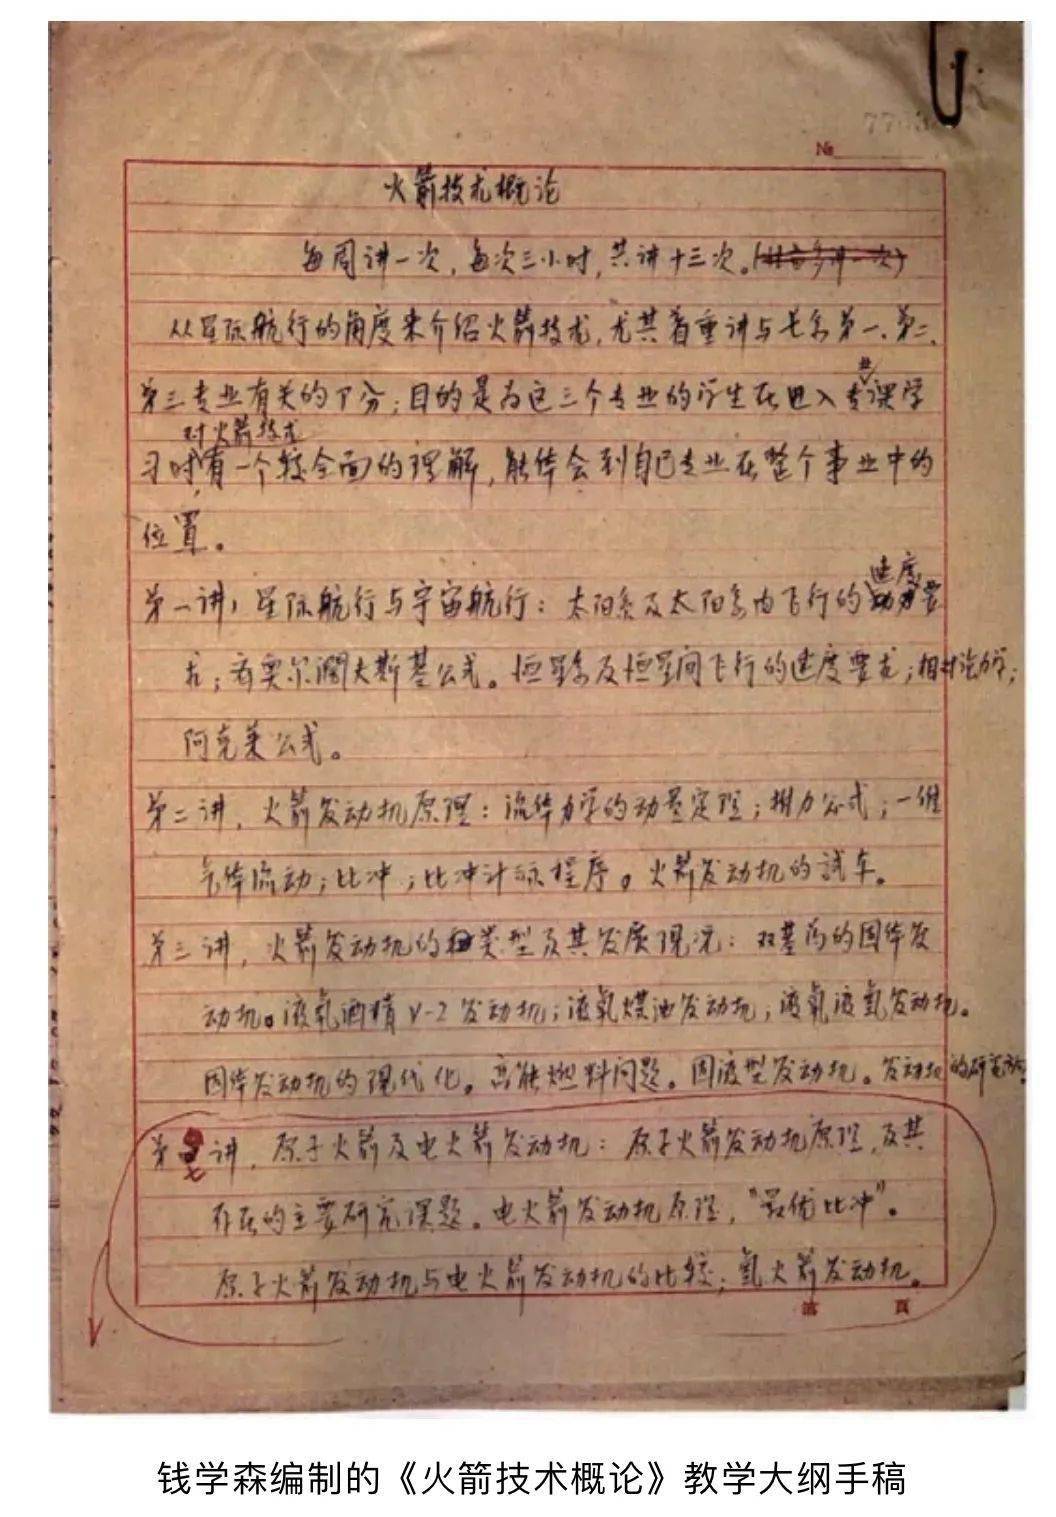 No.
火箭技术概论
每周讲一次,每次三小时,共讲十三次。
从星际航行的角度来介绍火箭技术,尤其着重讲与七系第一、第二、
第三专业有关的部分;目的是为这三个专业的学生在进入专业课学
对火箭技术
习时有一个较全面的理解,能体会到自己专业在整个事业中的
位置。
第一讲,星际航行与宇宙航行:太阳系及太阳系内飞行的速度要
求;齐奥尔阔夫斯基公式。恒星系及恒星间飞行的速度要求;相对论力学;
阿克莱公式。
第二讲,火箭发动机原理:流体力学的动量定理;推力公式;一维
气体流动;比冲;比冲计示程序。火箭发动机的試车。
第三讲,火箭发动机的类型及其发展现况:双基药的固体发
动机。液氧酒精V-2发动机;液氧煤油发动机;液氧液氢发动机。
固体发动机的现代化。高能燃料问题。固液型发动机。发动机的研究
第七讲,原子火箭及电火箭发动机:原子火箭发动机原理,及其
存在的主要研究课题。电火箭发动机原理,"最优比冲"。
原子火箭发动机与电火箭发动机的比较;氢火箭发动机。
第 頁
钱学森编制的《火箭技术概论》教学大纲手稿